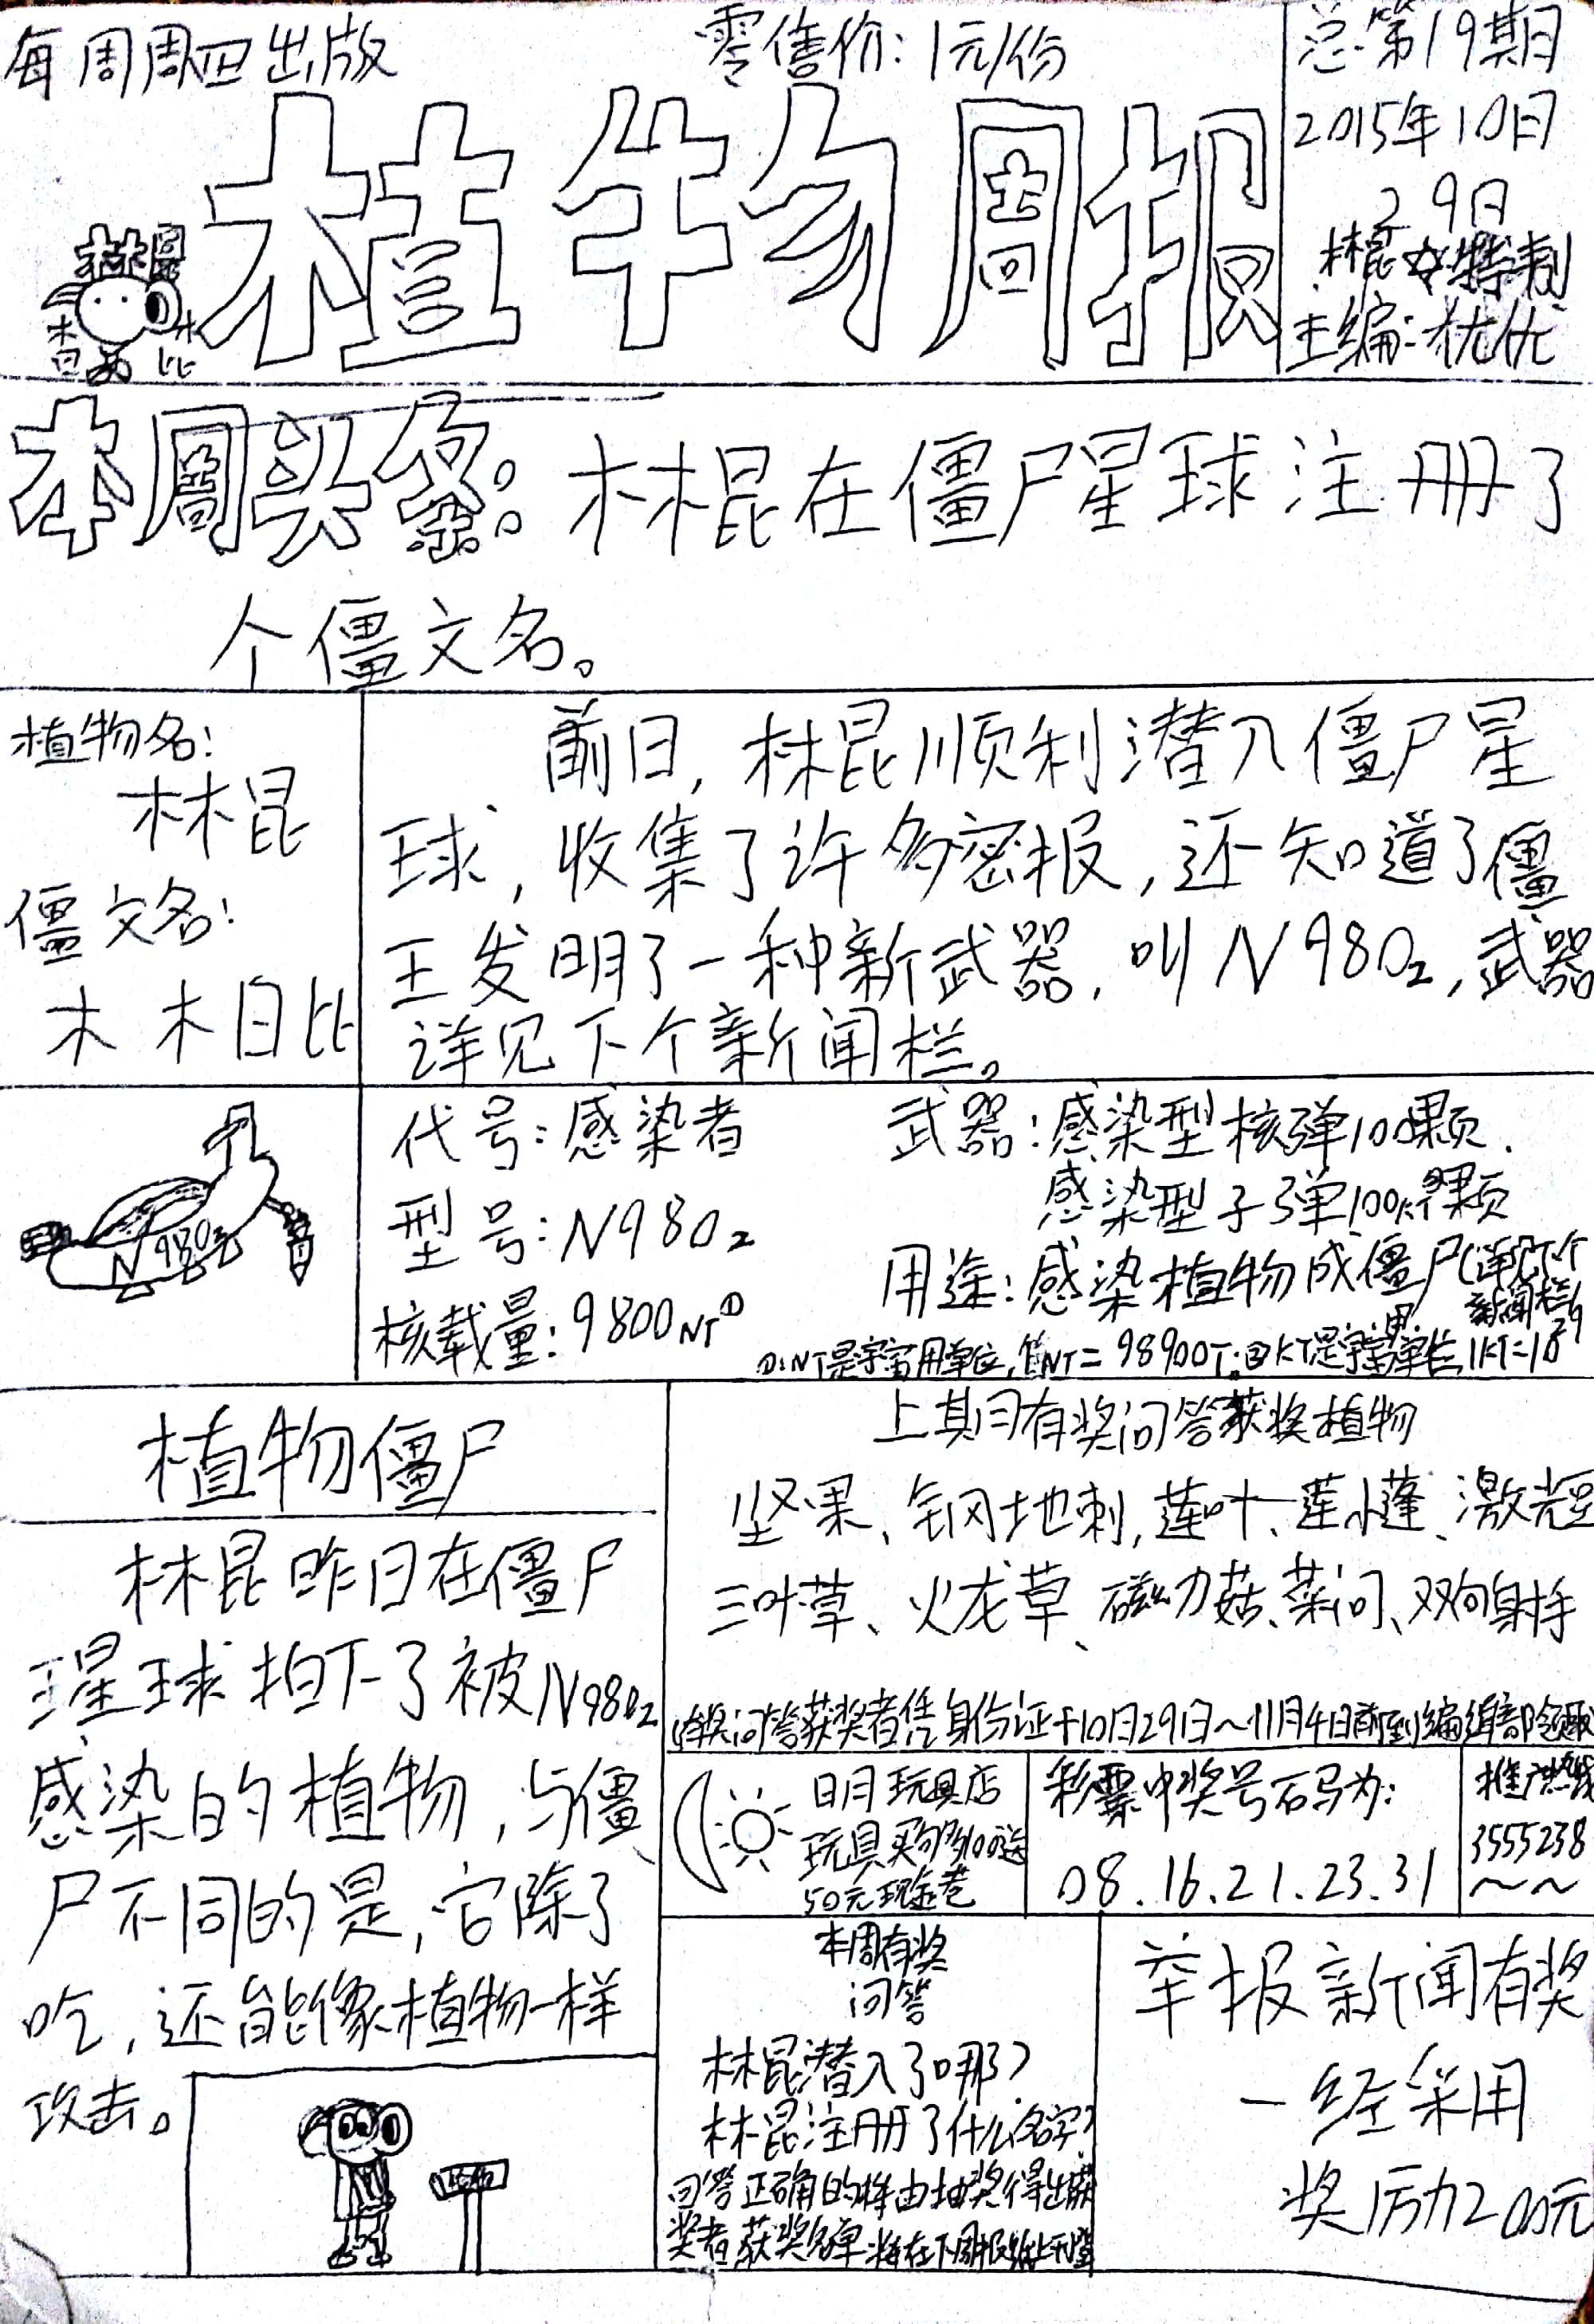 每周周四出版
零售价:1元/份
总第19期
2015年10日
29日
林昆☆特制
主编:优优
植物周报
林昆
木木日比
本周头条:林棍在僵尸星球注册了
个僵文名。
植物名:
林昆
僵文名:
木木日比
前日,林昆顺利潜入僵尸星
球,收集了许多密报,还知道了僵
王发明了一种新武器,叫N98O₂,武器
详见下个新闻栏。
N98O₂
代号:感染者
型号:N98O₂
核载量:9800NT①
武器:感染型核弹100颗.
感染型子弹100KT颗
用途:感染植物成僵尸(详见下个
新闻栏)
①:NT是宇宙用单位,1NT=98900T.②KT是宇宙用单位,1KT=10²⁹
植物僵尸
林昆昨日在僵尸
星球拍下了被N98O₂
感染的植物,与僵
尸不同的是,它除了
吃,还能像植物一样
攻击。
上期有奖问答获奖植物
坚果、钢地刺,莲叶、莲小蓬、激光豆
三叶草、火龙草、磁力菇、菜问、双向射手
(有奖问答获奖者凭身份证于10月29日~11月4日前到编辑部领取
日月玩具店
玩具买够100送
50元现金卷
彩票中奖号码为:
08.16.21.23.31
推广热线
3555238
~~
本周有奖
问答
林昆潜入了哪?
林昆注册了什么名字?
回答正确的将由抽奖得出获
奖者获奖名单将在下周报纸上刊登
举报新闻有奖
一经采用
奖厉力200元